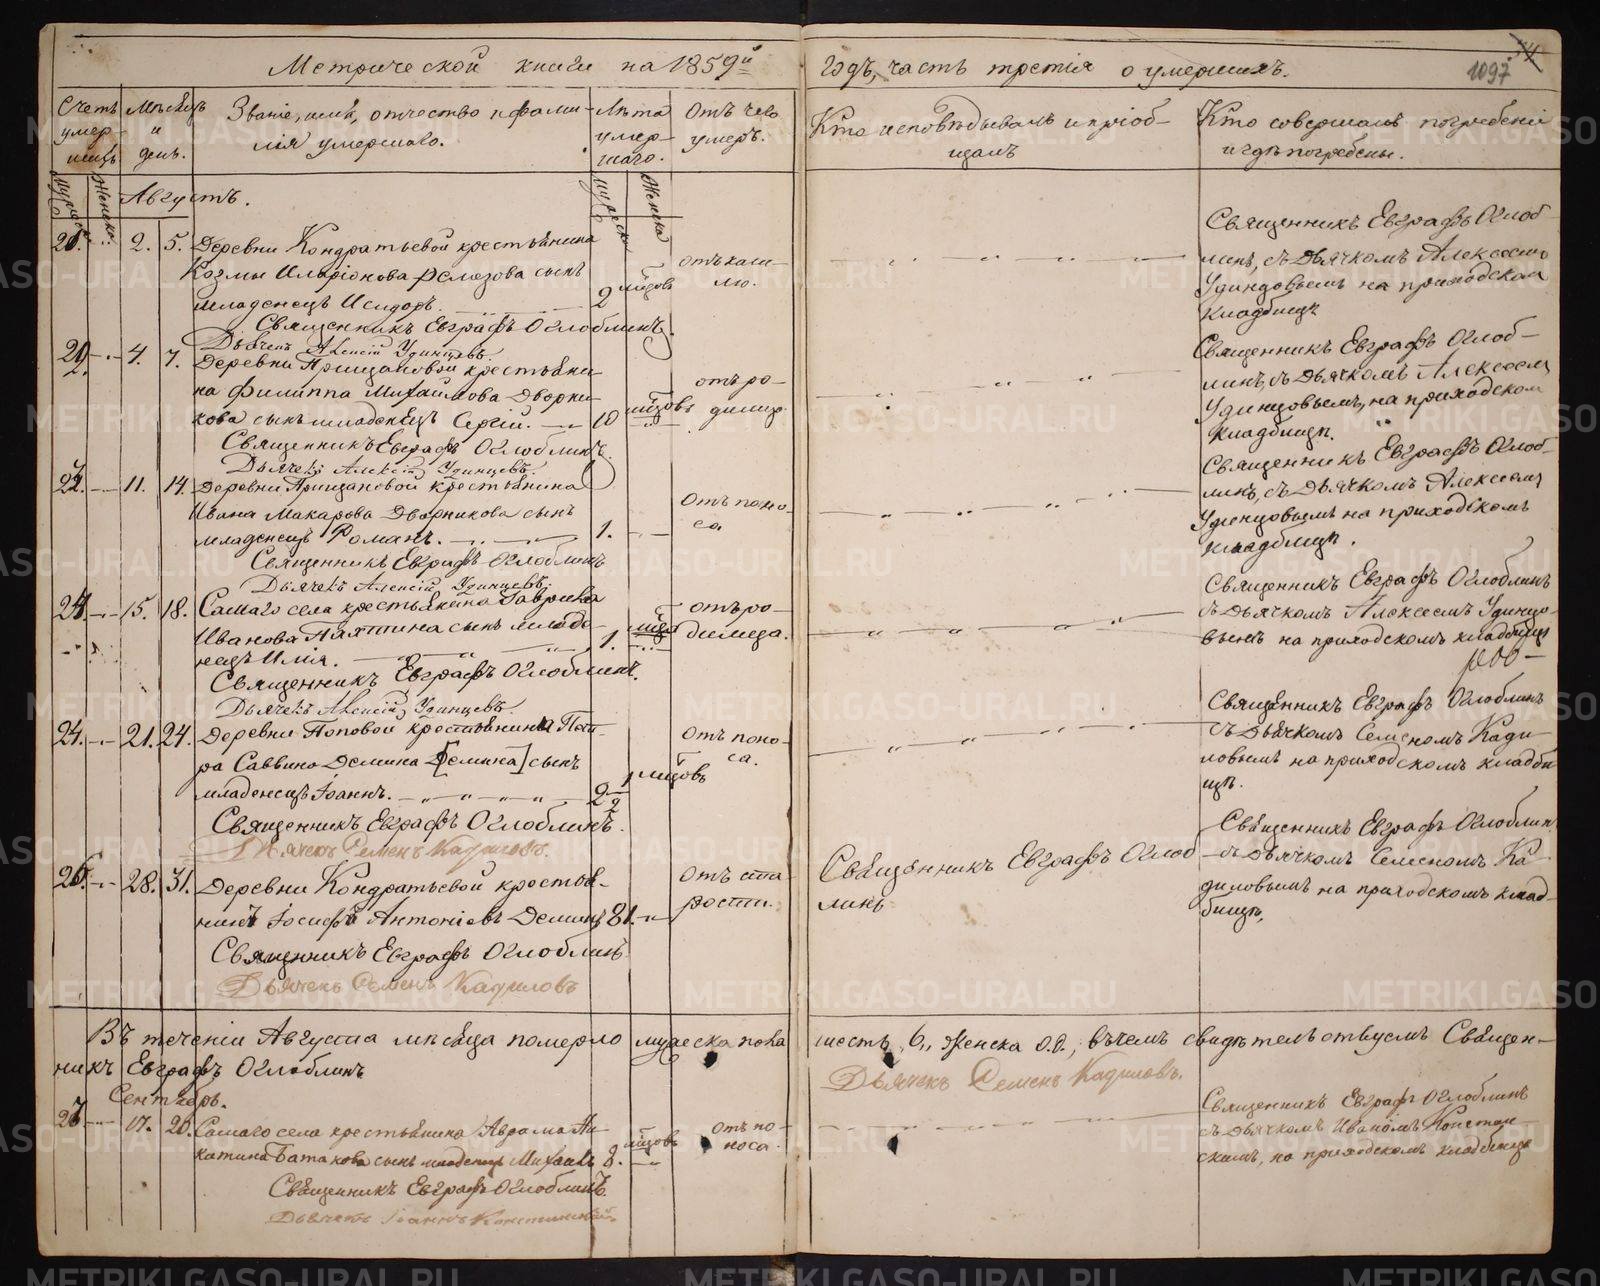 Метрической книги на 1859й
Годъ, часть третія о умершихъ.
1097
Счетъ умер- шихъ
Мѣсяцъ и день.
Званіе, имя, отчество и фами-
лія умершаго.
Лѣта умер- шаго.
Отъ чего умеръ.
Кто исповѣдывалъ и пріоб-
щалъ
Кто совершалъ погребеніе
и гдѣ погребены.
Мужеска
Женска
Августъ.
Мужеска
Женска
2. 5. Деревни Кондратьевой крестьянина
Козмы Иларіонова сынъ
младенецъ Исидоръ. 2 мѣсяцовъ
отъ каш-
лю.
Священникъ Евграфъ Оглоблинъ.
Дьячекъ Алексій Удинцевъ.
Священникъ Евграфъ Оглоб-
линъ, съ дьячкомъ Алексѣемъ
Удинцовымъ на приходскомъ
кладбищѣ
4. 7. Деревни Прищановой крестьяни-
на Филиппа Михайлова Дворни-
кова сынъ младенецъ Сергій. 10 мѣсяцовъ
отъ ро-
димца.
Священникъ Евграфъ Оглоблинъ.
Дьячекъ Алексій Удинцевъ.
Священникъ Евграфъ Оглоб-
линъ, съ дьячкомъ Алексѣемъ
Удинцовымъ, на приходскомъ
кладбищѣ.
11. 14. Деревни Прищановой крестьянина
Ивана Макарова Дворникова сынъ
младенецъ Романъ. 1.
отъ поно-
са
Священникъ Евграфъ Оглоблинъ
Дьячекъ Алексій Удинцевъ.
Священникъ Евграфъ Оглоб-
линъ, съ дьячкомъ Алексѣемъ
Удинцовымъ на приходскомъ
кладбищѣ.
15. 18. Самаго села крестьянина Гаврила
Иванова сынъ младе-
нецъ Илія. 1.
отъ ро-
димца.
Священникъ Евграфъ Оглоблинъ.
Дьячекъ Алексій Удинцевъ.
Священникъ Евграфъ Оглоблинъ
съ дьячкомъ Алексѣемъ Удинцо-
вымъ на приходскомъ кладбищѣ
24. 21. 24. Деревни Поповой крестьянина Пет-
ра Саввина Демина [Демина] сынъ
младенецъ Іоаннъ. 2 1/2 мѣсяцовъ
отъ поно-
са.
Священникъ Евграфъ Оглоблинъ.
Дьячекъ Семенъ Кадиловъ.
Священникъ Евграфъ Оглоблинъ
съ дьячкомъ Семеномъ Кади-
ловымъ на приходскомъ кладби-
щѣ.
28. 31. Деревни Кондратьевой крестья-
нинъ Іосифъ Антоніевъ Деминъ 81.
отъ ста-
рости.
Священникъ Евграфъ Оглоб-
линъ
Священникъ Евграфъ Оглоблинъ
Дьячекъ Семенъ Кадиловъ
Священникъ Евграфъ Оглоблин
съ дьячкомъ Семеномъ Ка-
диловымъ на приходскомъ клад-
бищѣ.
Въ теченіи Августа мѣсяца померло мужеска пола
шесть „6„ женска 0.0., въ чемъ свидѣтельствуемъ Священ-
никъ Евграфъ Оглоблинъ
Дьячекъ Семенъ Кадиловъ.
Сентябрь.
17. 20. Самаго села крестьянина Аврама Ни-
китина Батакова сынъ младенецъ Михаилъ 8. мѣсяцовъ
отъ по-
носа.
Священникъ Евграфъ Оглоблинъ.
Дьячекъ Іоаннъ
Священникъ Евграфъ Оглоблинъ
съ дьячкомъ Иваномъ Констан-
скимъ, на приходскомъ кладбищѣ
METRIKI.GASO-URAL.RU